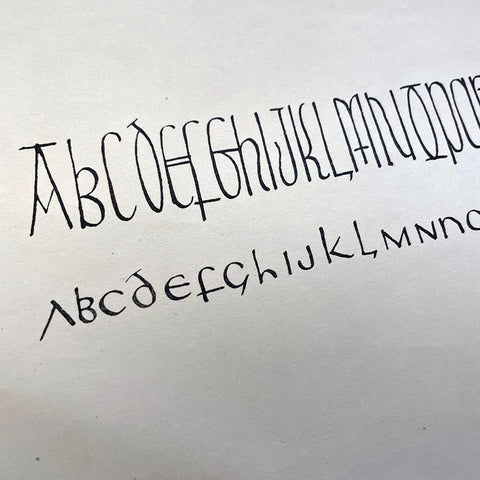 AbCdEFGhIJKLMNOpq
AbCdEFGhIJKLMNNO